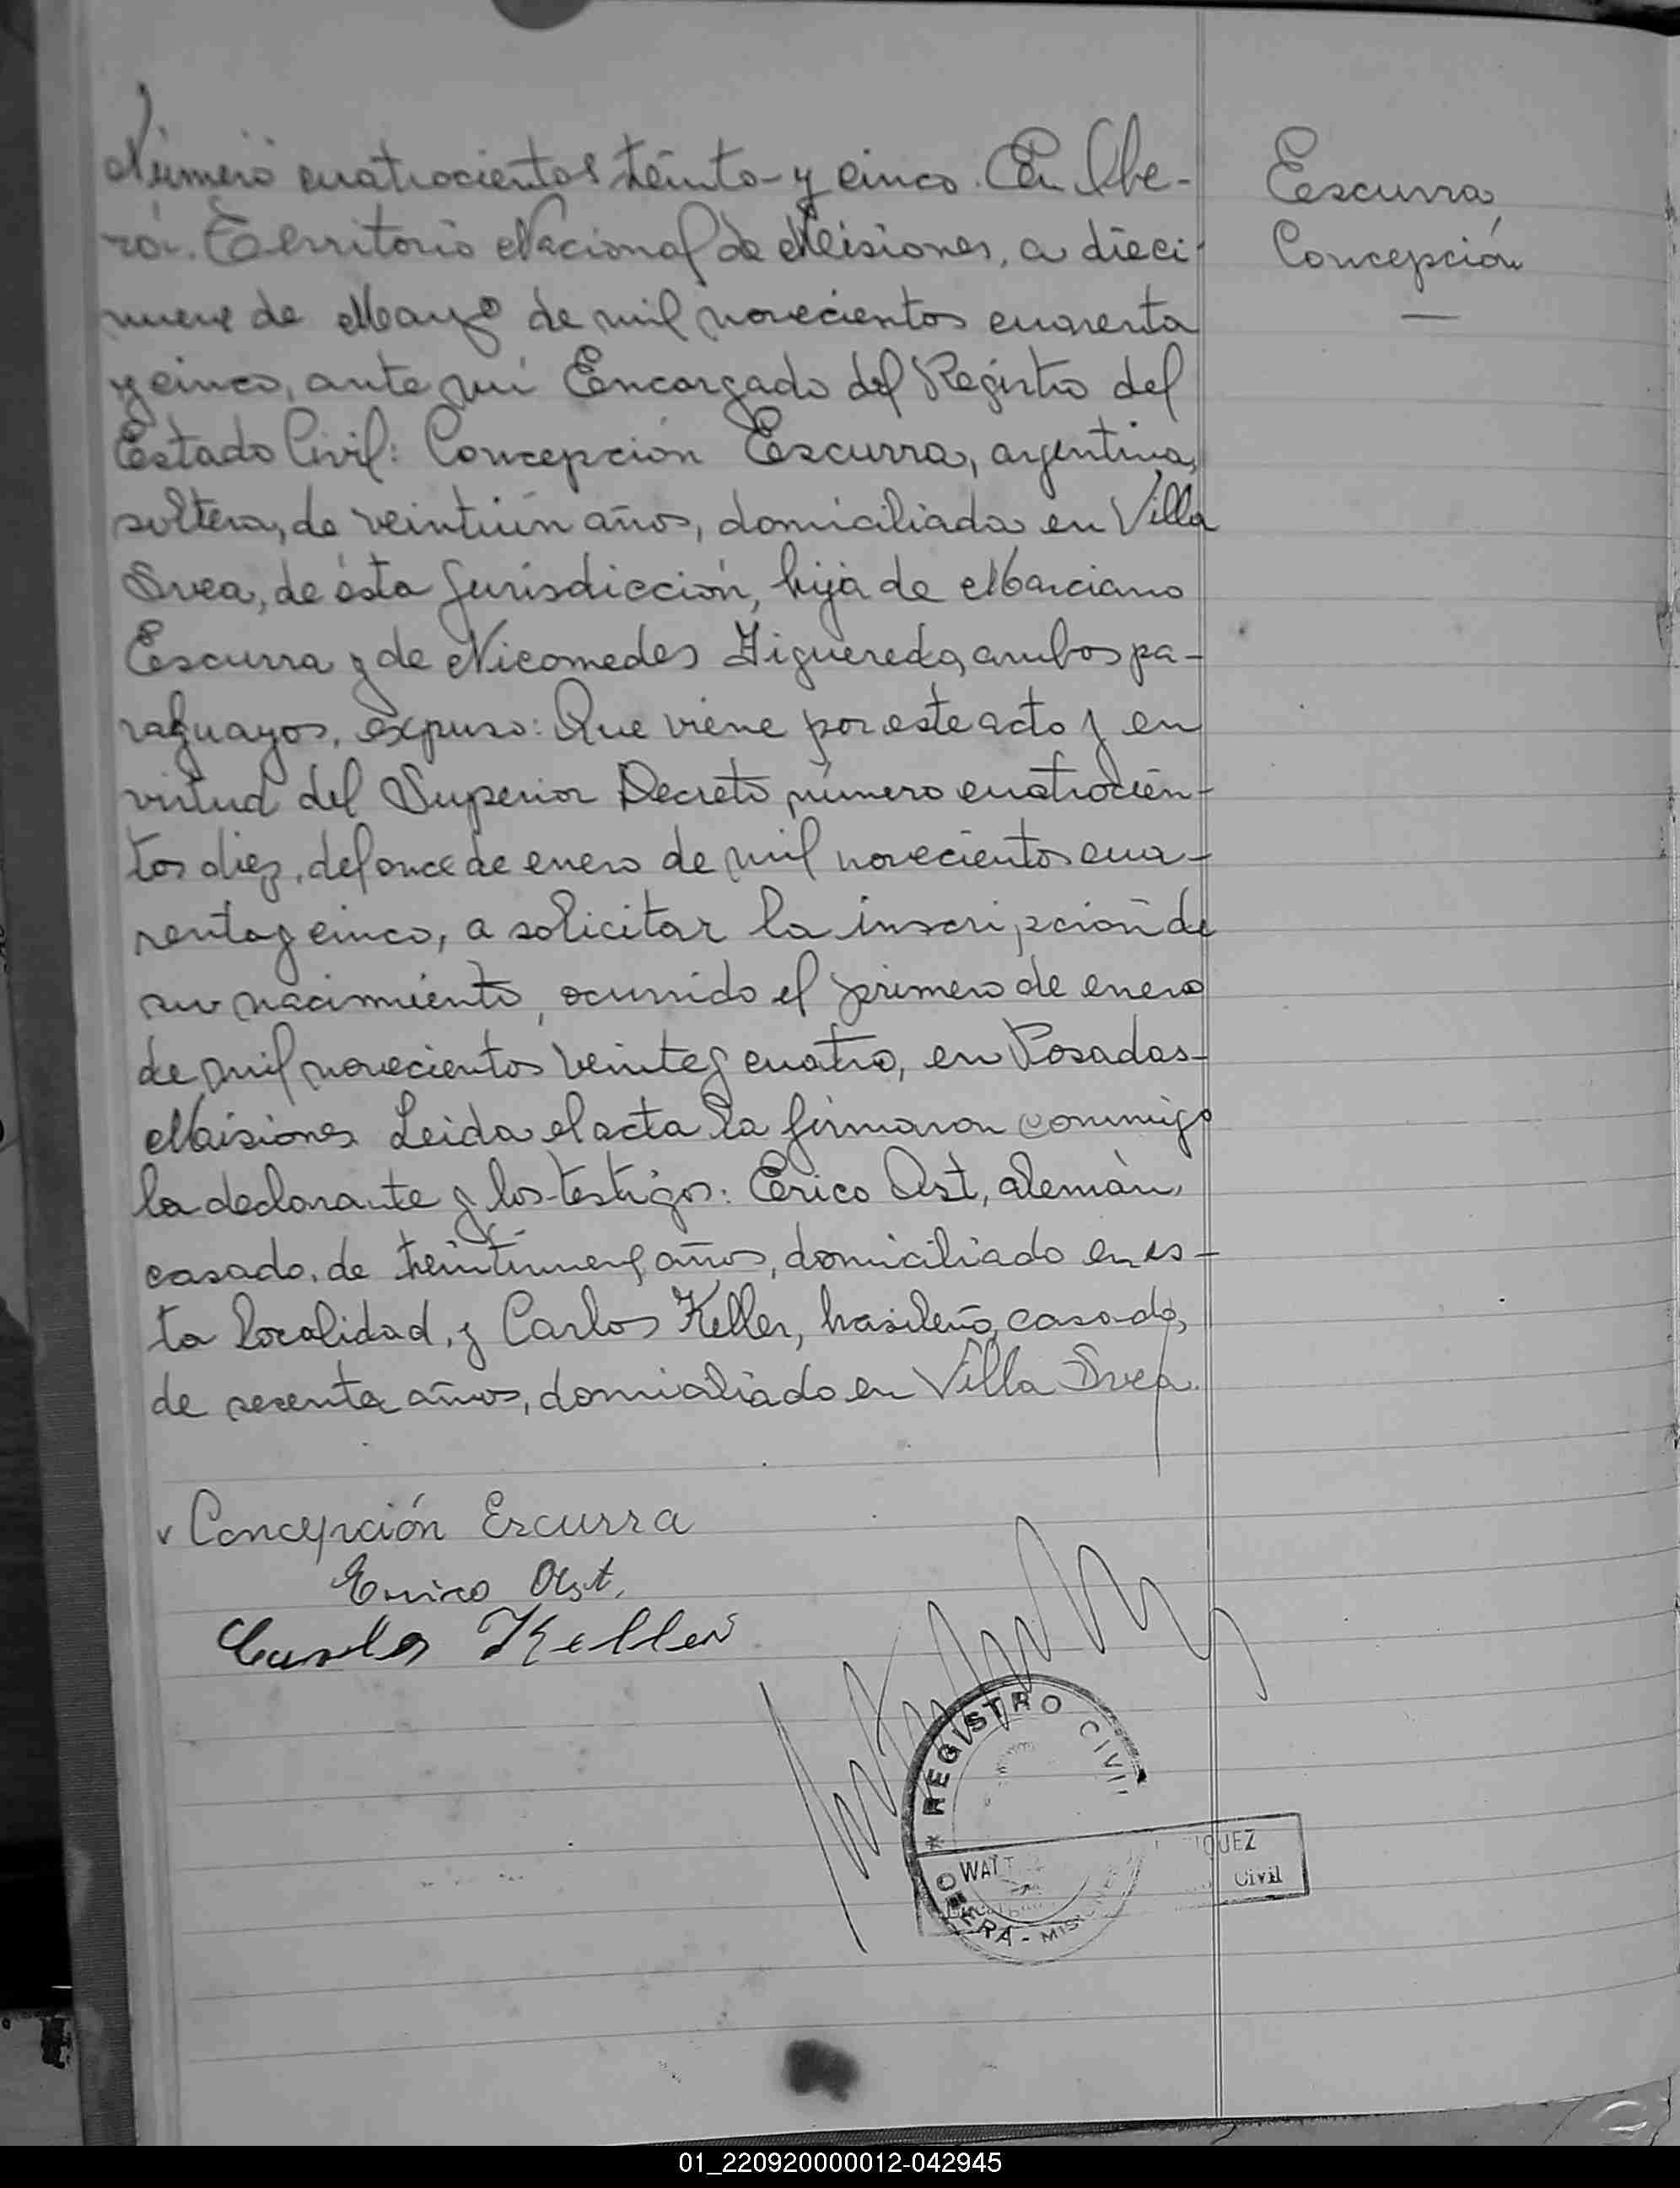 Número cuatrocientos treinta y cinco. En Obe-
rá. Territorio Nacional de Misiones, a dieci-
nueve de Mayo de mil novecientos cuarenta
y cinco, ante mí Encargado del Registro del
Estado Civil: Concepción Escurra, argentina,
soltera, de veintiún años, domiciliada en Villa
Svea, de ésta jurisdicción, hija de Marciano
Escurra y de Nicomedes Figueredo, ambos pa-
raguayos, expuso: Que viene por este acto y en
virtud del Superior Decreto número cuatrocien-
tos diez, del once de enero de mil novecientos cua-
renta y cinco, a solicitar la inscripción de
su nacimiento, ocurrido el primero de enero
de mil novecientos veinte y cuatro, en Posadas-
Misiones. Leida el acta la firmaron conmigo
la declarante y los testigos: Erico Ost, alemán,
casado, de años, domiciliado en es-
ta localidad, y Carlos Keller, brasileño, casado,
de sesenta años, domiciliado en Villa Svea.
Escurra
Concepción
Concepción Escurra
Erico Ost.
Carlos Keller
* REGISTRO CIVIL
OBERA - MISIONES
Civil
01_220920000012-042945